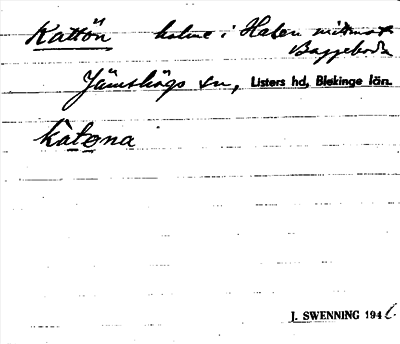 Kattön holme i Halen mittmot
Baggeboda
Jämshögs sn, Listers hd, Blekinge län.
kàtøna
J. SWENNING 1946.